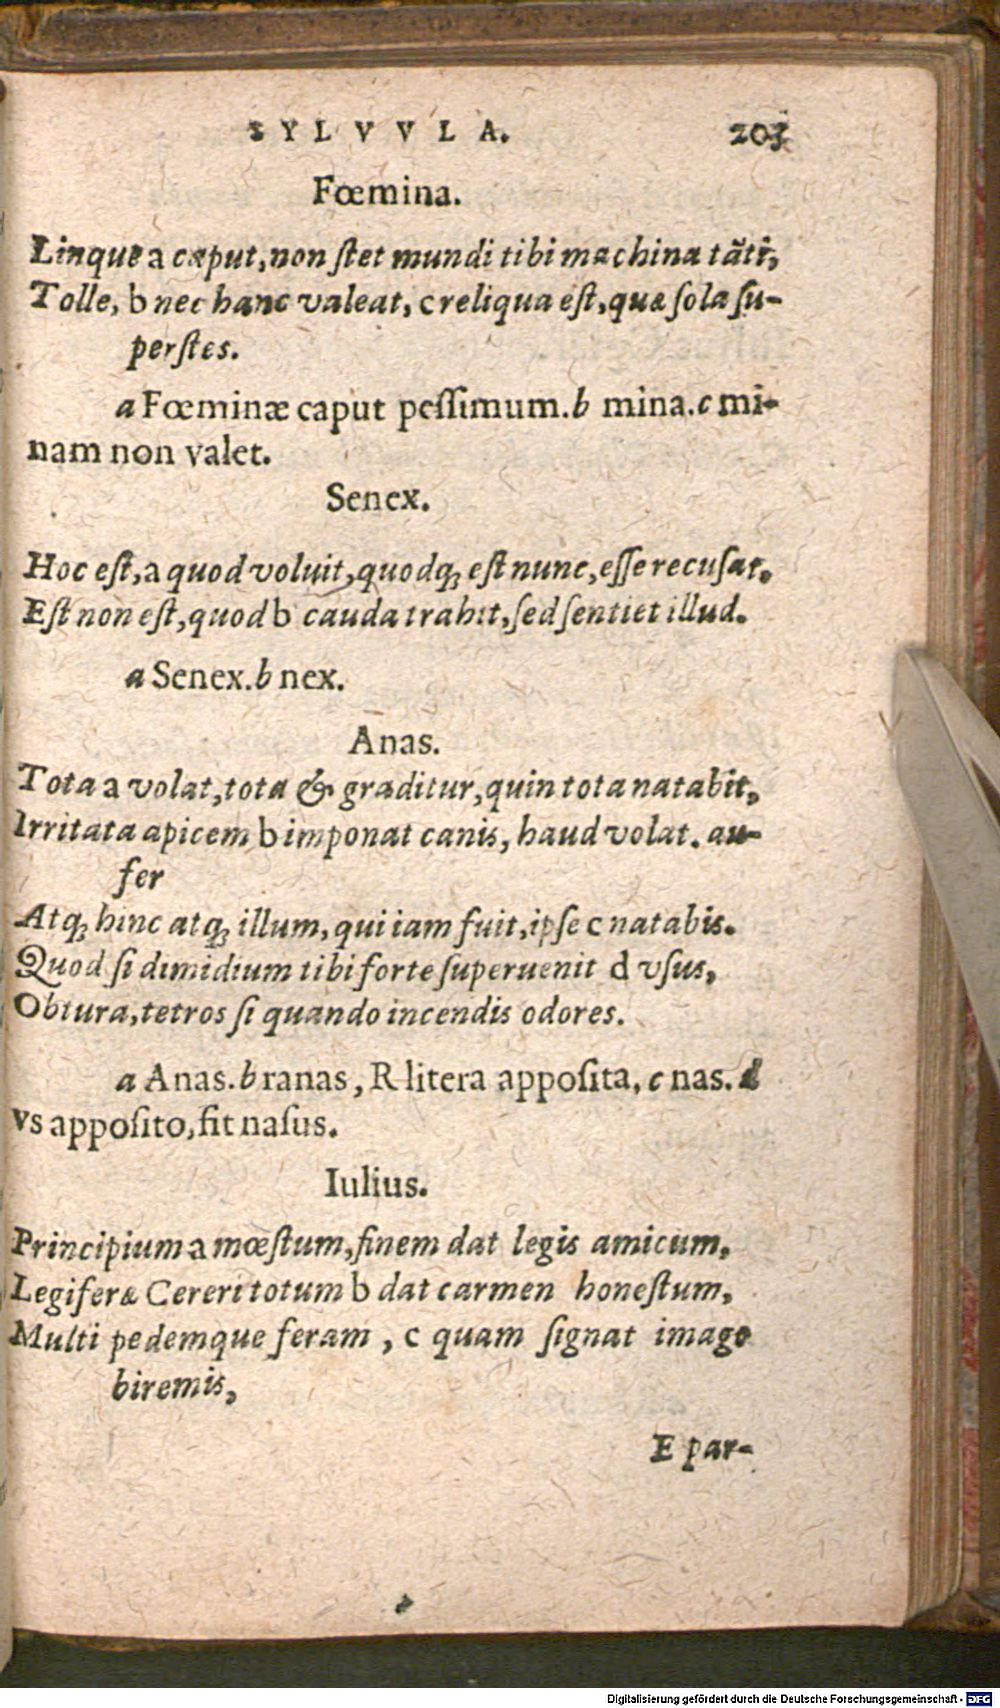 SYLVVLA. 203
Fœmina.
Linque a caput, non ſtet mundi tibi machina tāti,
Tolle, b nec hanc valeat, c reliqua eſt, quæ ſola ſu-
perſtes.
a Fœminæ caput peſſimum. b mina. c mi-
nam non valet.
Senex.
Hoc eſt, a quod voluit, quodq; eſt nunc, eſſe recuſat.
Eſt non eſt, quod b cauda trahit, ſed ſentiet illud.
a Senex. b nex.
Anas.
Tota a volat, tota & graditur, quin tota natabit,
Irritata apicem b imponat canis, haud volat. au-
fer
Atq; hinc atq; illum, qui iam fuit, ipſe c natabis.
Quod ſi dimidium tibi forte ſuperuenit d vſus,
Obtura, tetros ſi quando incendis odores.
a Anas. b ranas, R litera appoſita, c nas. d
vs appoſito, fit naſus.
Iulius.
Principium a mœſtum, finem dat legis amicum,
Legiferæ Cereri totum b dat carmen honeſtum,
Multi pedemque feram, c quam ſignat imago
biremis,
E par-
Digitalisierung gefördert durch die Deutsche Forschungsgemeinschaft - DFG